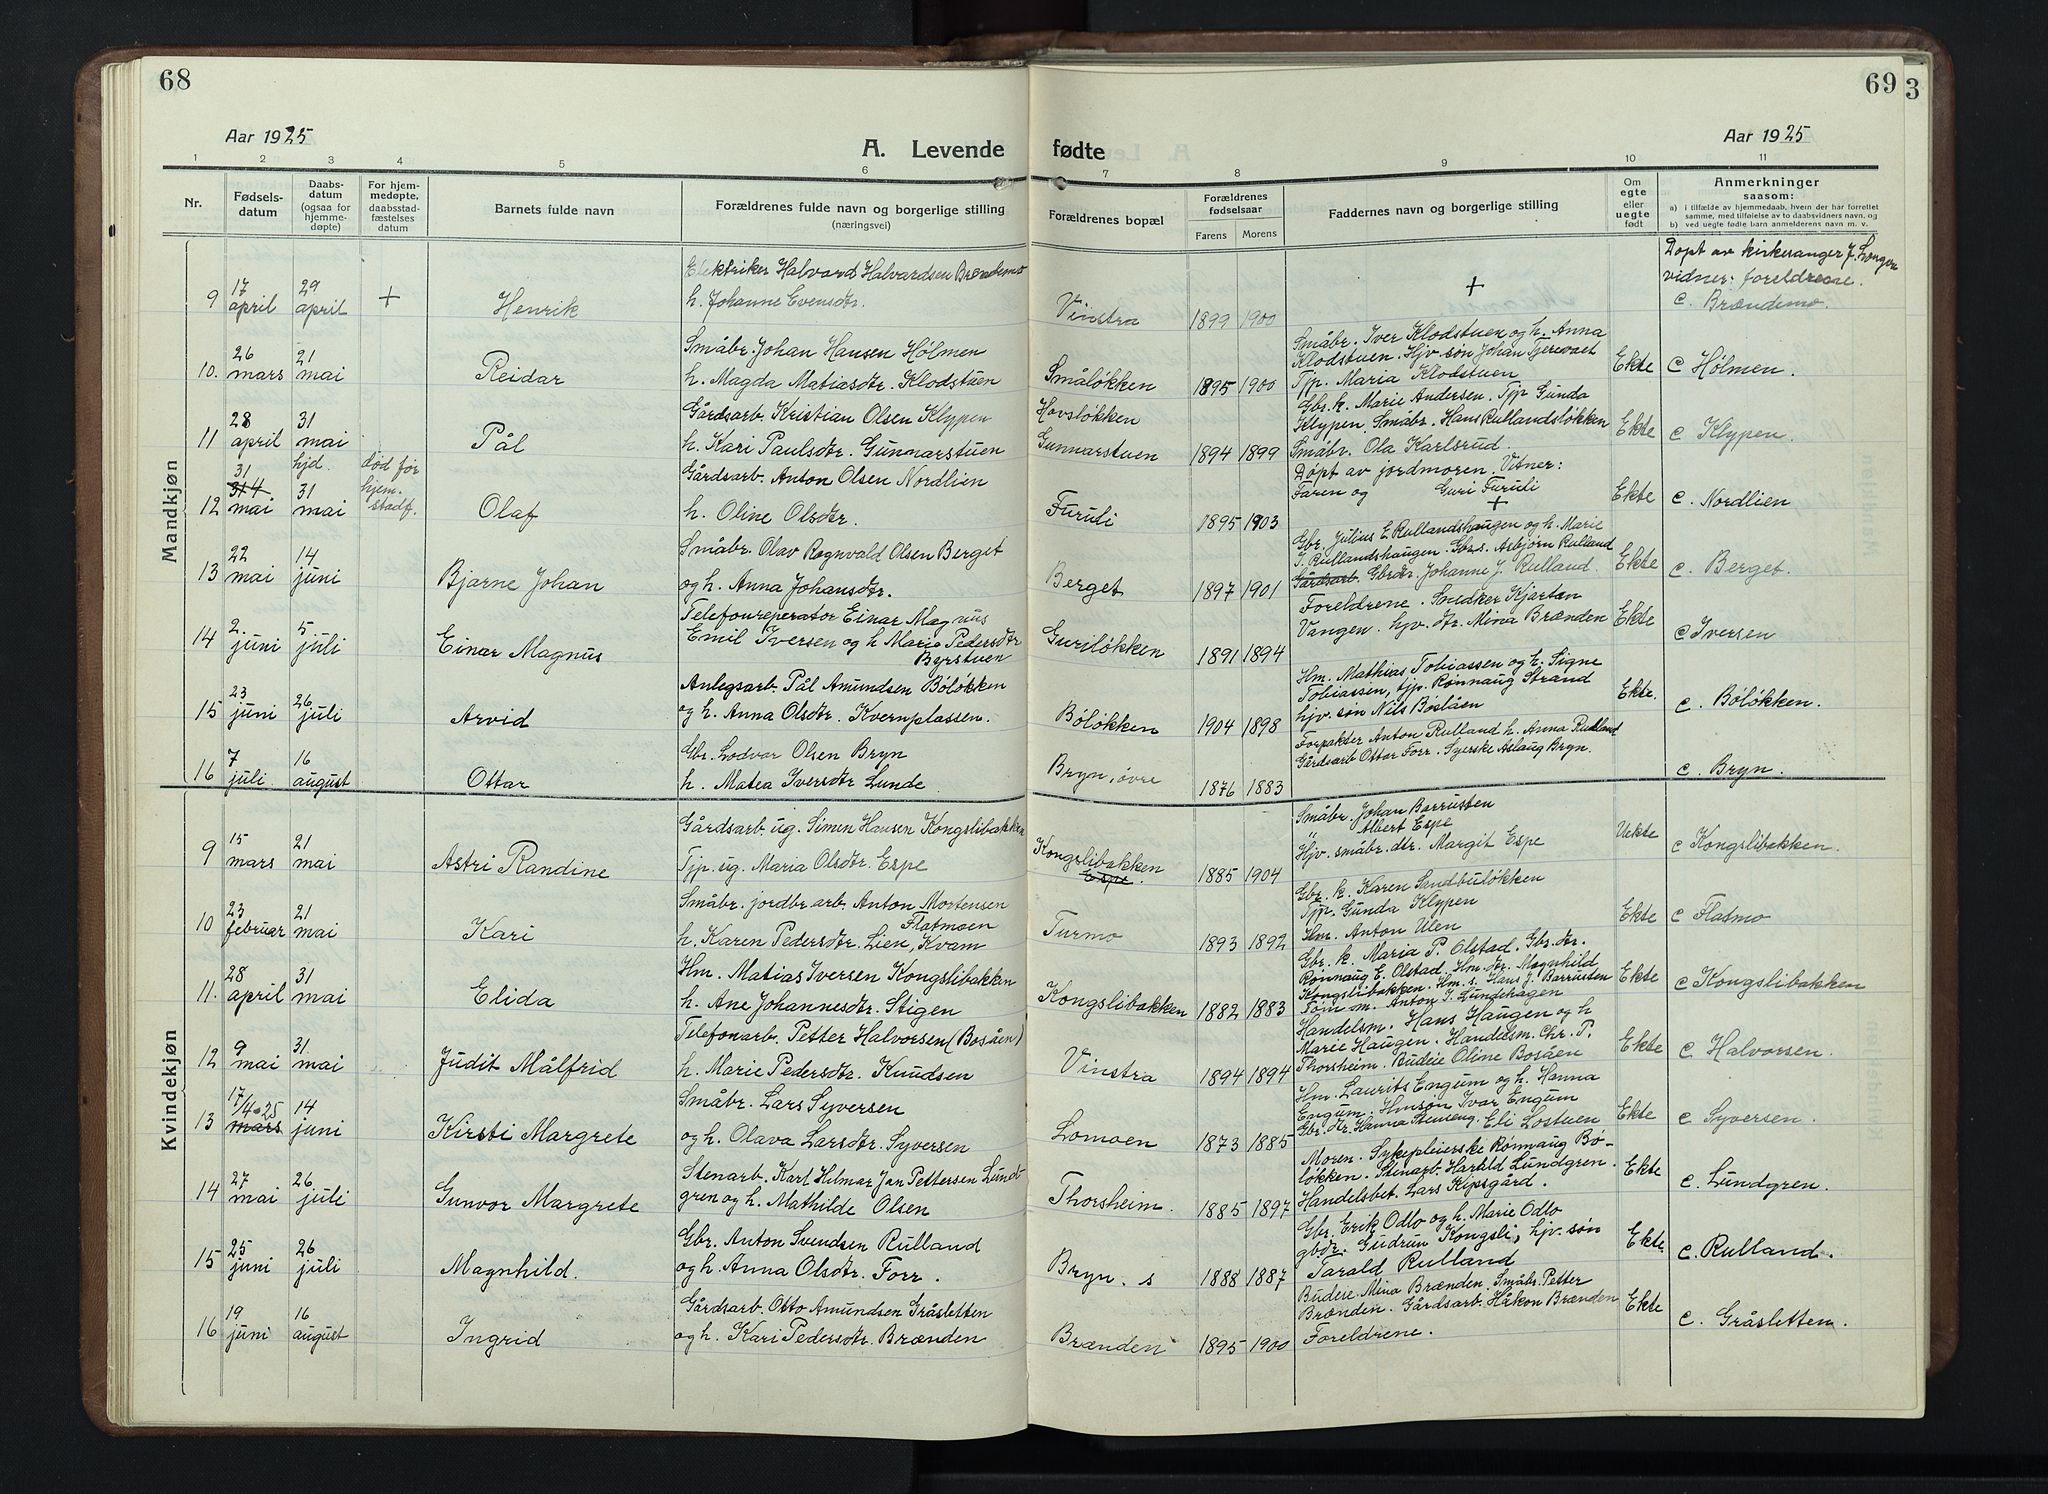 68
Aar 1925
A. Levende
1 2 3 4 5 6
Nr.
Fødsels-
datum
Daabs-
datum
(ogsaa for
hjemme-
døpte)
For hjem-
medøpte,
daabsstad-
fæstelses
datum
Barnets fulde navn
Forældrenes fulde navn og borgerlige stilling
(næringsvei)
Mandkjøn
Elektriker Halvard Halvardsen Brændemo
9 17 april 29 april + Henrik h. Johanne Evensdtr.
Småbr. Johan Hansen Hølmen
10. 26 mars 21 mai Reidar h. Magda Matiasdtr. Klodstuen
Gårdsarb. Kristian Olsen Klypen
11 28 april 31 mai Pål h. Kari Paulsdtr. Gunnarstuen
hjd. død før hjem- stadf. Gårdsarb. Anton Olsen Nordlien
12 31 mai 31 mai Olaf h. Oline Olsdtr.
Småbr. Olav Ragnvald Olsen Berget
13 22 mai 14 juni Bjarne Johan og h. Anna Johansdtr.
Telefonreperatør Einar Magnus
14 2. juni 5 juli Einar Magnus Emil Iversen og h Marie Pedersdtr
Byrstuen
Anlegsarb. Pål Amundsen Bøløkken
15 23 juni 26 juli Arvid og h. Anna Olsdtr. Kvernplassen.
Gbr. Lodvar Olsen Bryn
16 7 juli 16 august Ottar h. Matea Iversdtr Lunde
Kvindekjøn
Gårdsarb. ug. Simen Hansen Kongslibakken
9 15 mars 21 mai Astri Randine Tjp. ug. Maria Olsdtr. Espe
Småbr. jordbr. arb. Anton Mortensen
Flatmoen
10 23 februar 21 mai Kari h. Karen Pedersdtr. Lien, Kvam
Hm. Matias Iversen Kongslibakken
11. 28 april 31 mai Elida h. Ane Johannesdtr. Stigen
Telefonarb. Petter Halvorsen (Bosåen)
12 9 mai 31 mai Judit Målfrid h. Marie Pedersdtr. Knudsen
Småbr. Lars Syversen
13 17/4-25 mars 14 juni Kirsti Margrete og h. Olava Larsdtr. Syversen
Stenarb. Karl Hilmar Jan Pettersen Lund-
14 27 mai 26 juli Gunvor Margrete gren og h. Mathilde Olsen
Gbr. Anton Svendsen Rulland
15 25 juni 26 juli Magnhild. og h. Anna Olsdtr. Forr.
Gårdsarb. Otto Amundsen Gråsletten
16 19 juni 16 august Ingrid og h. Kari Pedersdtr. Brænden
69
3
Aar 1925
fødte
7 8 9 10 11
Forældrenes bopæl
Forældrenes
fødselsaar
Farens Morens
Faddernes navn og borgerlige stilling
Om
egte
eller
uegte
født
Anmerkninger
saasom:
a) i tilfælde av hjemmedaab, hvem der har forrettet
samme, med tilføielse av to daabsvidners navn, og
b) ved uegte fødte barn anmelderens navn m. v.
Døpt av kirkesanger J. Longva
vidner: foreldrene.
Vinstra 1899 1900 + c. Brændemo
Småbr. Iver Klodstuen og h. Anna
Klodstuen. Hjv. søn Johan
Småløkken 1895 1900 Tjp. Maria Klodstuen Ekte c Hølmen.
Gbr. k. Marie Andersen. Tjp Gunda
Hovsløkken Klypen. Småbr. Hans Rullandsløkken
Gunnarstuen 1894 1899 Småbr. Ola Karlsrud. Ekte c Klypen.
Døpt av jordmoren. Vitner:
Faren og Guri Furuli
Furuli 1895 1903 + Ekte c. Nordlien
Gbr. Julius E Rullandshaugen og h. Marie
T. Rullandshaugen. Gbrs. Asbjørn Rulland
Berget 1897 1901 Gårdsarb. Gbrdtr. Johanne J. Rulland. Ekte c. Berget.
Foreldrene. Snedker Kjartan
Guriløkken 1891 1894 Vangen. hjv. dtr. Mina Brænden Ekte c Iversen
Hm. Mathias Tobiassen og h. Signe
Tobiassen, tjp. Rønnaug Strand
Bøløkken 1904 1898 hjv. søn Nils Bøslåen Ekte. c. Bøløkken.
Forpakter Anton Rulland h. Anna Rulland
Gårdsarb Ottar Forr. Syerske Aslaug Bryn.
Bryn, øvre 1876 1883 c. Bryn.
Småbr. Johan Barrusten
" Albert Espe
Kongslibakken Espe. 1885 1904 Hjv. småbr. dtr. Margit Espe Uekte c Kongslibakken.
Gbr. k. Karen Sandbuløkken
Tjp. Gunda Klypen
Turmo 1893 1892 Hm. Anton Ulen Ekte c Flatmo
Gbr. k. Maria P. Olstad. Gbr. dtr.
Rønnaug E. Olstad. Hm. dtr. Magnhild
Kongslibakken. Hm. s. Hans J. Barrusten
Kongslibakken 1882 1883 Tøm m. Anton I. Lundehagen Ekte c Kongslibakken
Handelsm. Hans Haugen og h
Marie Haugen. Handelsm. Chr. P.
Vinstra 1894 1894 Thorsheim. Budeie Oline Bosåen Ekte c. Halvorsen.
Hm. Laurits Engum og h. Hanna
Engum. Hmsøn Ivar Engum
Lomoen 1873 1885 Gbr. dtr. Hanna Steineng. Eli Lostuen Ekte c Syversen.
Moren. Sykepleierske Rønnaug Bø-
løkken. Stenarb. Harald Lundgren.
Thorsheim. 1885 1897 Handelsbet. Lars Kipsgård. Ekte c. Lundgren.
Gbr. Erik Odlo og h. Marie Odlo
gbdr. Gudrun Kongsli, hjv. søn
Bryn. s 1888 1887 Tarald Rulland Ekte. c. Rulland.
Budeie Mina Brænden Småbr. Petter
Brænden. Gårdsarb. Håkon Brænden
Brænden 1895 1900 Foreldrene. Ekte c. Gråsletten.